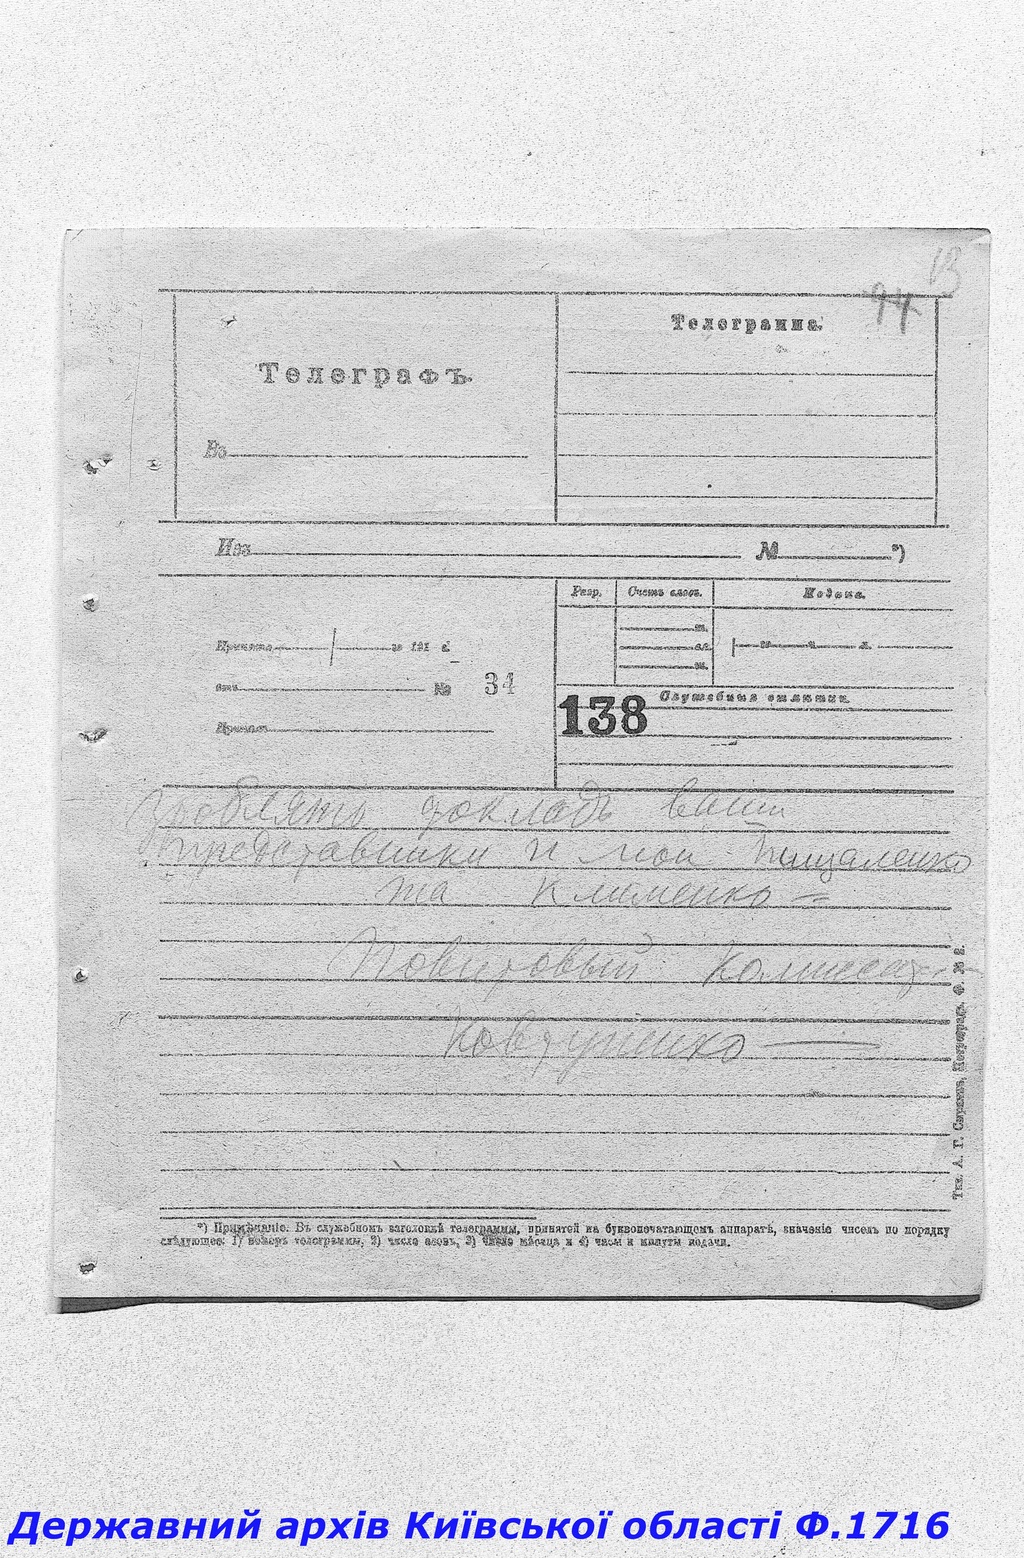 13
94
Телеграмма.
Телеграфъ.
Въ
Изъ № *)
Разр. Счетъ словъ. Подана.
Принята 191 г.
№ 34
Принялъ
138 Служебныя отмѣтки.
зроблять докладъ ваши
представники и мои Пищаленко
та Клименко =
Повитовый Комиссар
Ковтуненко
Тип. А. Г. Сыркинъ, Петроградъ. Ф. № 2.
*) Примѣчаніе. Въ служебномъ заголовкѣ телеграммы, принятой на буквопечатающемъ аппаратѣ, значеніе чиселъ по порядку
слѣдующее: 1) номеръ телеграммы, 2) число словъ, 3) число мѣсяца и 4) часы и минуты подачи.
Державний архів Київської області Ф.1716